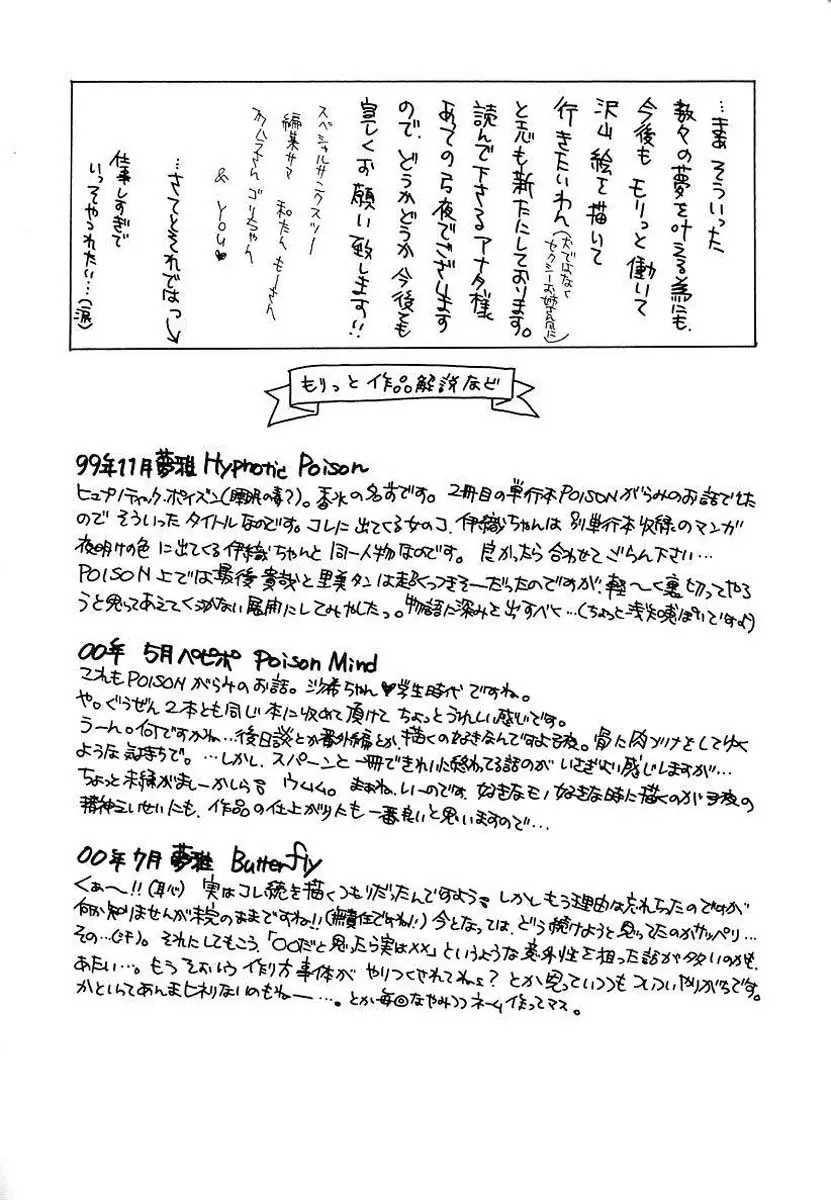 …まぁ そういった
数々の夢を叶える為にも、
今後も モリっと 働いて
沢山 絵を描いて
行きたいわん(犬ではなく
セクシーお姉さん風に)
と志も新たにしております。
読んで下さるアナタ様
あっての 夜でございます
ので、どうかどうか 今後とも
宜しくお願い致します!!
スペシャルサンクスツー
編集サマ 和たん もーさん
オクムラさん ゴリちゃん
& YOU♥
…さてとそれではっ→
仕事しすぎで
いっそやつれたい…(涙)
もりっと 作品解説など
99年11月 夢雅 Hypnotic Poison
ヒュプノティック・ポイズン(睡眠の毒?)。香水の名前です。2冊目の単行本POISONがらみのお話でした
ので そういった タイトルなのです。コレに出てくる女のコ、伊織ちゃんは 別単行本収録のマンガ
夜明けの色 に出てくる伊織ちゃんと 同一人物なのです。良かったら 合わせて ごらん下さい…
POISON上では最後 貴哉と 里美タンは 超くっつきそーだったのですが、軽〜く裏切ってやろ
うと思ってあえてくっつかない展開にしてみやしたっ。物語に深みを出すべく…(ちょっと浅知恵ぽいですよ)
00年 5月 ペピポ Poison Mind
これもPOISONがらみのお話。沙希ちゃん♥学生時代 ですね。
や。ぐうぜん 2本とも同じ本に収めて頂けて ちょっとうれしい感じです。
うーん。何ですかね…後日談とか番外編とか、描くの好きなんですよ 夜。骨に肉づけをしてゆく
ような 気持ちで。…しかし、スパーンと 一冊できれいに終わってる話のが いさぎよい感じしますが…
ちょっと未練がましーかしら ウムム。まぁね、いーのです。好きなモノ 好きな時に描くのが 夜の
精神えいせいにも、作品の仕上がりにも 一番良いと思いますので…
00年7月 夢雅 Butterfly
くぁ〜!!(恥) 実はコレ続きを描くつもりだったんですよう しかしもう理由は忘れちったのですが
何か知りませんが未完のままですね!!(無責任ですね!) 今となっては、どう続けようと思ってたのかサッパリ…
その…(汗)。それにしてもこう、「○○だと思ったら実は××」というような意外性を狙った話が多いのかも、
あたい…。もう そおいう 作り方事体が やりつくされてねぇ? とか思っていつつも ついついやりがちです。
かといってあんまヒネリないのもねー…。とか毎回なやみつつ ネーム作ってマス。